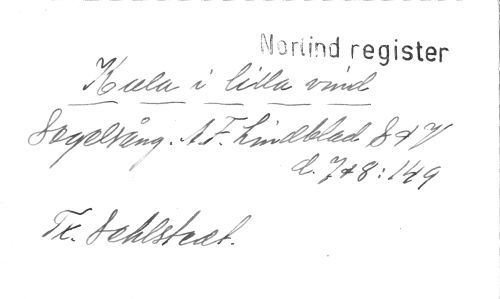 Norlind register
Kula i lilla vind
Fogelsång. A. F. Lindblad S & V
d. 7+8: 149
Tx. Sehlstedt.